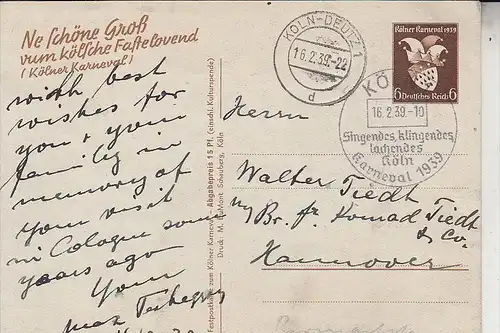 Ne schöne Groß
vum kölsche Fastelovend
(Kölner Karneval)
with best
wishes for
you & your
family in
memory of
your visit
in Cologne some
years ago
Your
Max
Festpostkarte zum Kölner Karneval Abgabepreis 15 Pf. (einschl. Kulturspende)
Druck: M. DuMont Schauberg, Köln
KÖLN-DEUTZ 1
16.2.39.-22
d
Kölner Karneval 1939
6 Deutsches Reich 6
KÖ
16.2.39.-10
Singendes, klingendes,
lachendes
Köln
Karneval 1939
Herrn
Walter Tiedt
Br. Fr. Konrad Tiedt
& Co.
Hannover